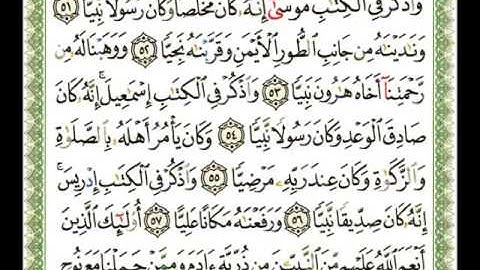 وَٱذۡكُرۡ فِي ٱلۡكِتَٰبِ مُوسَىٰٓۚ إِنَّهُۥ كَانَ مُخۡلَصٗا وَكَانَ رَسُولٗا نَّبِيّٗا ٥١
وَنَٰدَيۡنَٰهُ مِن جَانِبِ ٱلطُّورِ ٱلۡأَيۡمَنِ وَقَرَّبۡنَٰهُ نَجِيّٗا ٥٢ وَوَهَبۡنَا لَهُۥ مِن
رَّحۡمَتِنَآ أَخَاهُ هَٰرُونَ نَبِيّٗا ٥٣ وَٱذۡكُرۡ فِي ٱلۡكِتَٰبِ إِسۡمَٰعِيلَۚ إِنَّهُۥ كَانَ
صَادِقَ ٱلۡوَعۡدِ وَكَانَ رَسُولٗا نَّبِيّٗا ٥٤ وَكَانَ يَأۡمُرُ أَهۡلَهُۥ بِٱلصَّلَوٰةِ
وَٱلزَّكَوٰةِ وَكَانَ عِندَ رَبِّهِۦ مَرۡضِيّٗا ٥٥ وَٱذۡكُرۡ فِي ٱلۡكِتَٰبِ إِدۡرِيسَۚ
إِنَّهُۥ كَانَ صِدِّيقٗا نَّبِيّٗا ٥٦ وَرَفَعۡنَٰهُ مَكَانًا عَلِيًّا ٥٧ أُوْلَٰٓئِكَ ٱلَّذِينَ
أَنۡعَمَ ٱللَّهُ عَلَيۡهِم مِّنَ ٱلنَّبِيِّـۧنَ مِن ذُرِّيَّةِ ءَادَمَ وَمِمَّنۡ حَمَلۡنَا مَعَ نُوحٖ